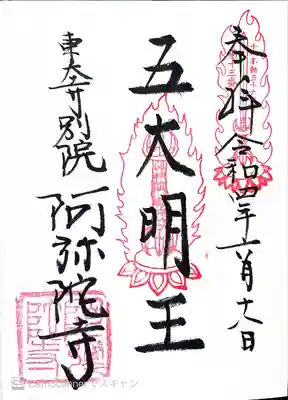 奉拝 令和四年六月十八日
五大明王
東大寺別院 阿弥陀寺
CamScannerでスキャン